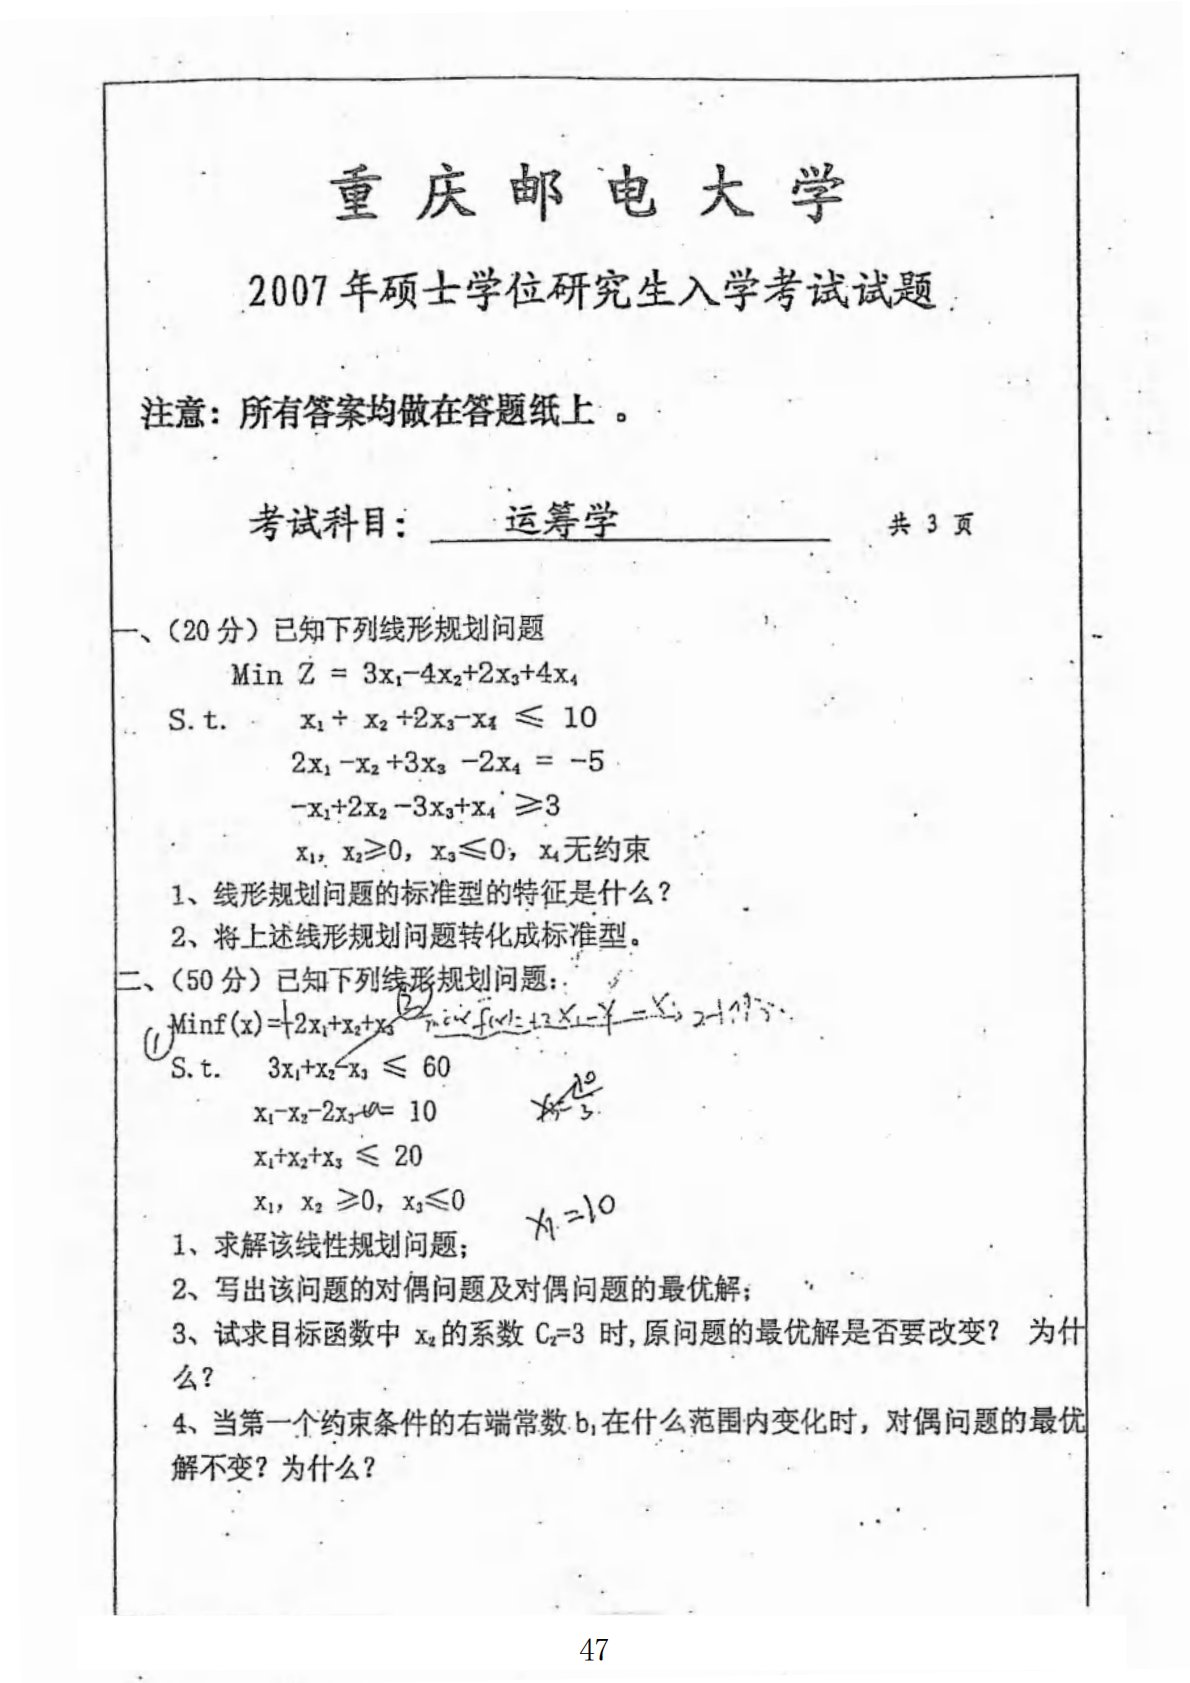 重庆邮电大学
2007年硕士学位研究生入学考试试题
注意：所有答案均做在答题纸上 。
考试科目： 运筹学 共 3 页
一、（20分）已知下列线形规划问题
Min Z = 3x₁-4x₂+2x₃+4x₄
S.t. x₁+ x₂+2x₃-x₄ ≤ 10
2x₁-x₂+3x₃ -2x₄ = -5
-x₁+2x₂-3x₃+x₄ ≥3
x₁，x₂≥0，x₃≤0，x₄无约束
1、线形规划问题的标准型的特征是什么？
2、将上述线形规划问题转化成标准型。
二、（50分）已知下列线形规划问题：
① Minf(x)=-2x₁+x₂+x₃ ②
S.t. 3x₁+x₂-x₃ ≤ 60
x₁-x₂-2x₃ = 10
x₁+x₂+x₃ ≤ 20
x₁，x₂ ≥0，x₃≤0
x₁=10
1、求解该线性规划问题；
2、写出该问题的对偶问题及对偶问题的最优解；
3、试求目标函数中 x₂的系数 C₂=3 时,原问题的最优解是否要改变？ 为什
么？
4、当第一个约束条件的右端常数 b₁在什么范围内变化时，对偶问题的最优
解不变？为什么？
47